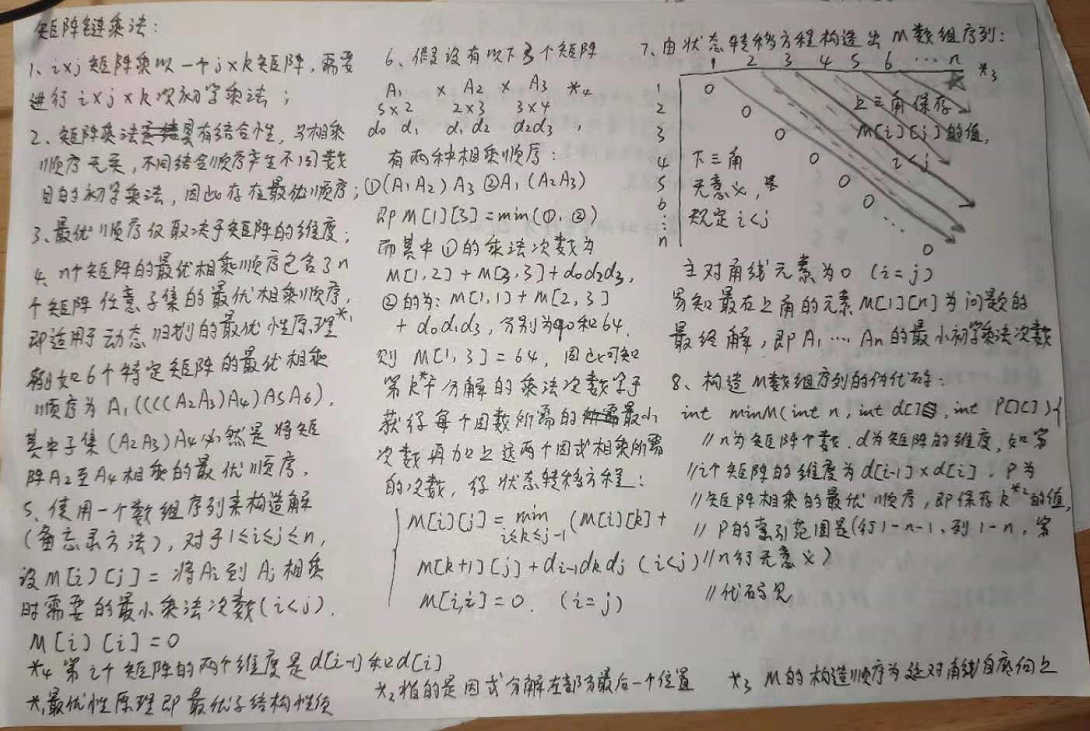 矩阵链乘法:
1、i×j矩阵乘以一个j×k矩阵,需要
进行i×j×k次初等乘法;
2、矩阵乘法具有结合性,与相乘
顺序无关,不同结合顺序产生不同数
目的初等乘法,因此存在最优顺序;
3、最优顺序仅取决于矩阵的维度;
4、n个矩阵的最优相乘顺序包含了n
个矩阵任意子集的最优相乘顺序,
即适用于动态规划的最优性原理*1
例如6个特定矩阵的最优相乘
顺序为A1((((A2A3)A4)A5A6),
其中子集(A2A3)A4必然是将矩
阵A2至A4相乘的最优顺序.
5、使用一个数组序列来构造解
(备忘录方法),对于1≤i≤j≤n,
设M[i][j]=将Ai到Aj相乘
时需要的最小乘法次数(i<j).
M[i][i]=0
*4 第i个矩阵的两个维度是d[i-1]和d[i]
*1最优性原理即最优子结构性质
6、假设有以下3个矩阵
A1 × A2 × A3 *4
5×2 2×3 3×4
d0 d1 d1 d2 d2d3,
有两种相乘顺序:
①(A1A2)A3 ②A1(A2A3)
即M[1][3]=min(①,②)
而其中①的乘法次数为
M[1,2]+M[3,3]+d0d2d3,
②的为:M[1,1]+M[2,3]
+d0d1d3,分别为90和64.
则 M[1,3]=64,因此可知
第k个分解的乘法次数等于
获得每个因数所需的最小
次数再加上这两个因式相乘所需
的次数,得状态转移方程:
M[i][j]=min(M[i][k]+
i≤k≤j-1
M[k+1][j]+di-1dkdj (i<j)
M[i,i]=0. (i=j)
*2指的是因式分解左部分最后一个位置
7、由状态转移方程构造出M数组序列:
1 2 3 4 5 6 … n *3
1 0
2 0 上三角保存
3 0 M[i][j]的值,
4 下三角 0 i<j
5 无意义, 0
6 规定i<j 0
⋮
n 0
主对角线元素为0 (i=j)
易知最右上角的元素M[1][n]为问题的
最终解,即A1…An的最小初等乘法次数
8、构造M数组序列的伪代码:
int minM(int n, int d[], int P[][]){
//n为矩阵个数.d为矩阵的维度,如第
//i个矩阵的维度为d[i-1]×d[i]. P为
//矩阵相乘的最优顺序,即保存k*2的值,
//P的索引范围是(行1-n-1,列1-n,第
//n行无意义)
//代码见
*3 M的构造顺序为延对角线自底向上